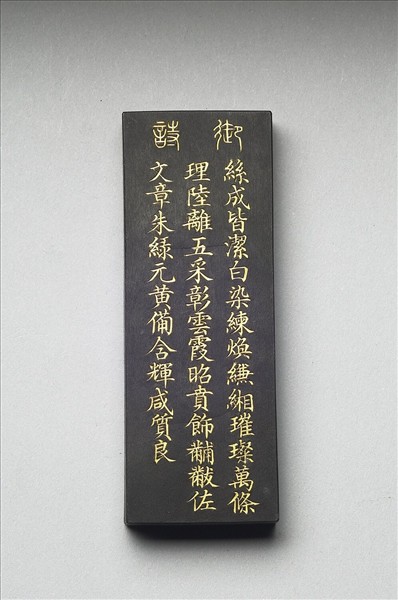 御詩
絲成皆潔白染練煥縑緗璀璨萬條
理陸離五采彰雲霞昭賁飾黼黻佐
文章朱綠元黃備含輝咸質良